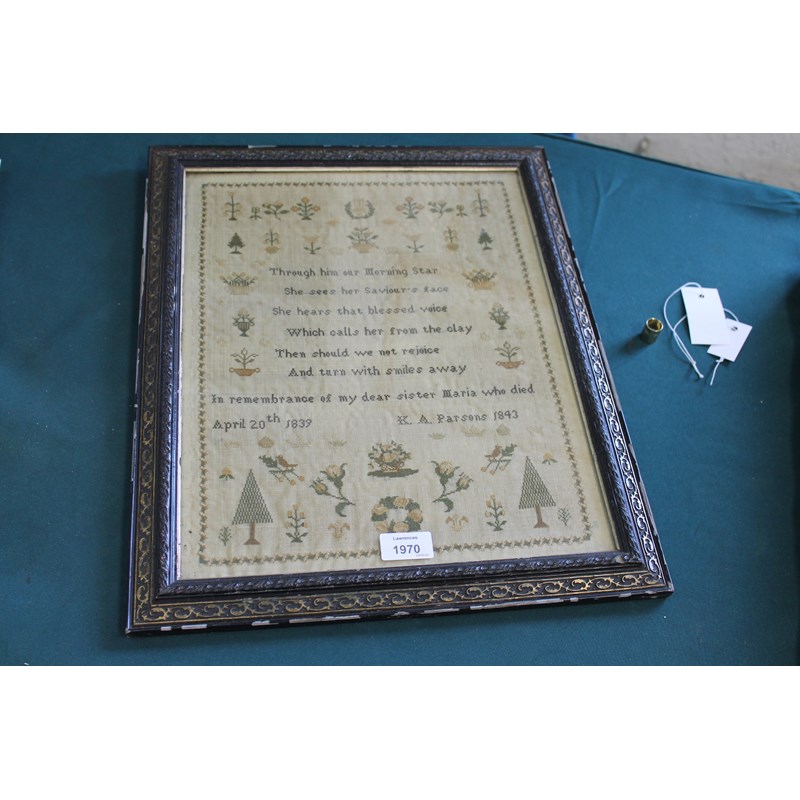 Through him our Morning Star
She sees her Saviour's face
She hears that blessed voice
Which calls her from the clay
Then should we not rejoice
And turn with smiles away
In remembrance of my dear sister Maria who died
April 20th 1839 K. A. Parsons 1843
Lawrences
1970